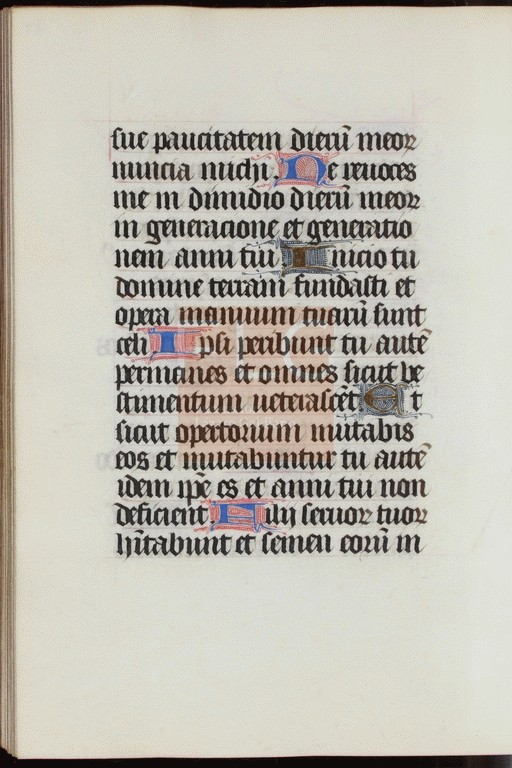 sue paucitatem dierū meoꝝ
nuncia michi. Ne reuoces
me in dimidio dierū meoꝝ
in generacione et generatio
nem anni tui Inicio tu
domine terram fundasti et
opera manuum tuarū sunt
celi Ipsi peribunt tu autē
permanes et omnes sicut ve
stimentum ueterascēt Et
sicut opertorium mutabis
eos et mutabuntur tu autē
idem ip̄e es et anni tui non
deficient Filij seruoꝝ tuoꝝ
hītabunt et semen eorū in